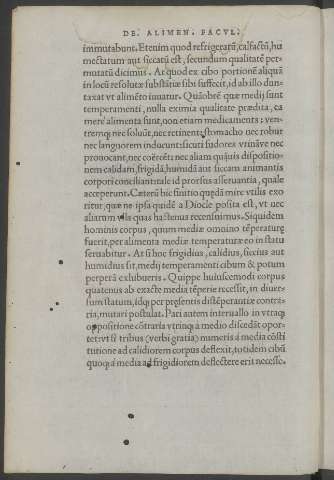 DE. ALIMEN. FACVL.
immutabunt. Etenim quod refrigeratū, calfactū, hu
mectatum aut siccatū est, secundum qualitatē per-
mutatū dicimus. At quod ex cibo portionē aliquā
in locū resolutæ substātiæ sibi suffecit, id ab illo dun-
taxat vt alimēto iuuatur. Quāobrē quæ medij sunt
temperamenti, nulla eximia qualitate prædita, ea
mere alimenta sunt, non etiam medicamenta: ven-
tremq; nec soluūt, nec retinent, stomacho nec robur
nec languorem inducunt: sicuti sudores vrināve nec
prouocant, nec coërcēt: nec aliam quāuis dispositio-
nem calidam, frigidā, humidā aut siccam animantis
corpori conciliant: tale id prorsus asseruantia, quale
acceperunt. Cæterū hic finitio quędā mire vtilis exo
ritur, quæ ne ipsa quidē a Diocle posita est, vt nec
aliarum vllas quas hactenus recensuimus. Siquidem
hominis corpus, quum mediæ omnino tēperaturę
fuerit, per alimenta mediæ temperaturæ eo in statu
seruabitur. At si hoc frigidius, calidius, siccius aut
humidius sit, medij temperamenti cibum & potum
perperā exhibueris. Quippe huiuscemodi corpus
quatenus ab exacte media tēperie recessit, in diuer-
sum statum, idq; per pręsentis distēperantiæ contra-
ria, mutari postulat. Pari autem interuallo in vtraq;
oppositione cōtraria vtrinq; a medio discedāt opor-
tet: vt si tribus (verbi gratia) numeris á media cōsti
tutione ad calidiorem corpus deflexit, totidem cibū
quoq; á media ad frigidiorem deflectere erit necesse.